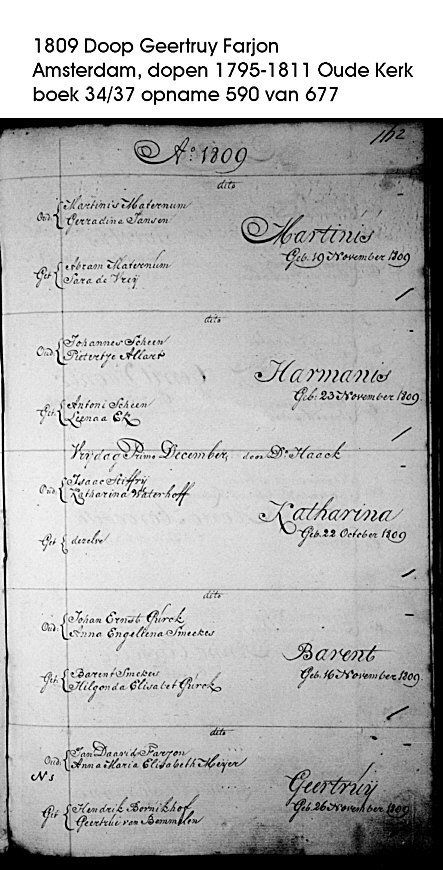 1809 Doop Geertruy Farjon
Amsterdam, dopen 1795-1811 Oude Kerk
boek 34/37 opname 590 van 677
162
Ao. 1809
dito
Oud: { Martinis Maternum
Gerradina Jansen
Martinis
Geb. 19 November 1809
Get { Abram Maternum
Sara de Vrey
dito
Oud: { Johannes Scheen
Pietertje Allart
Harmanis
Geb: 23 November 1809.
Get: { Antoni Scheen
Leenaa Ek
Vrydag Primo December, door Ds. Haack
Oud: { Isaac Stiffry
Katharina Waterhoff
Katharina
Geb. 22 October 1809
Get { dezelve
dito
Oud: { Johan Ernst Gürck
Anna Engeltina Smeekes
Barent
Geb. 16 November 1809
Get: { Barent Smekes
Hilgonda Elisabet Gürck
dito
Oud: { Jan Daavid Farjon
Anna Maria Elisabeth Meyer
Geertruy
Geb. 26 November 1809
Get { Hendrik Bornikhof
Geertrui van Bommelen